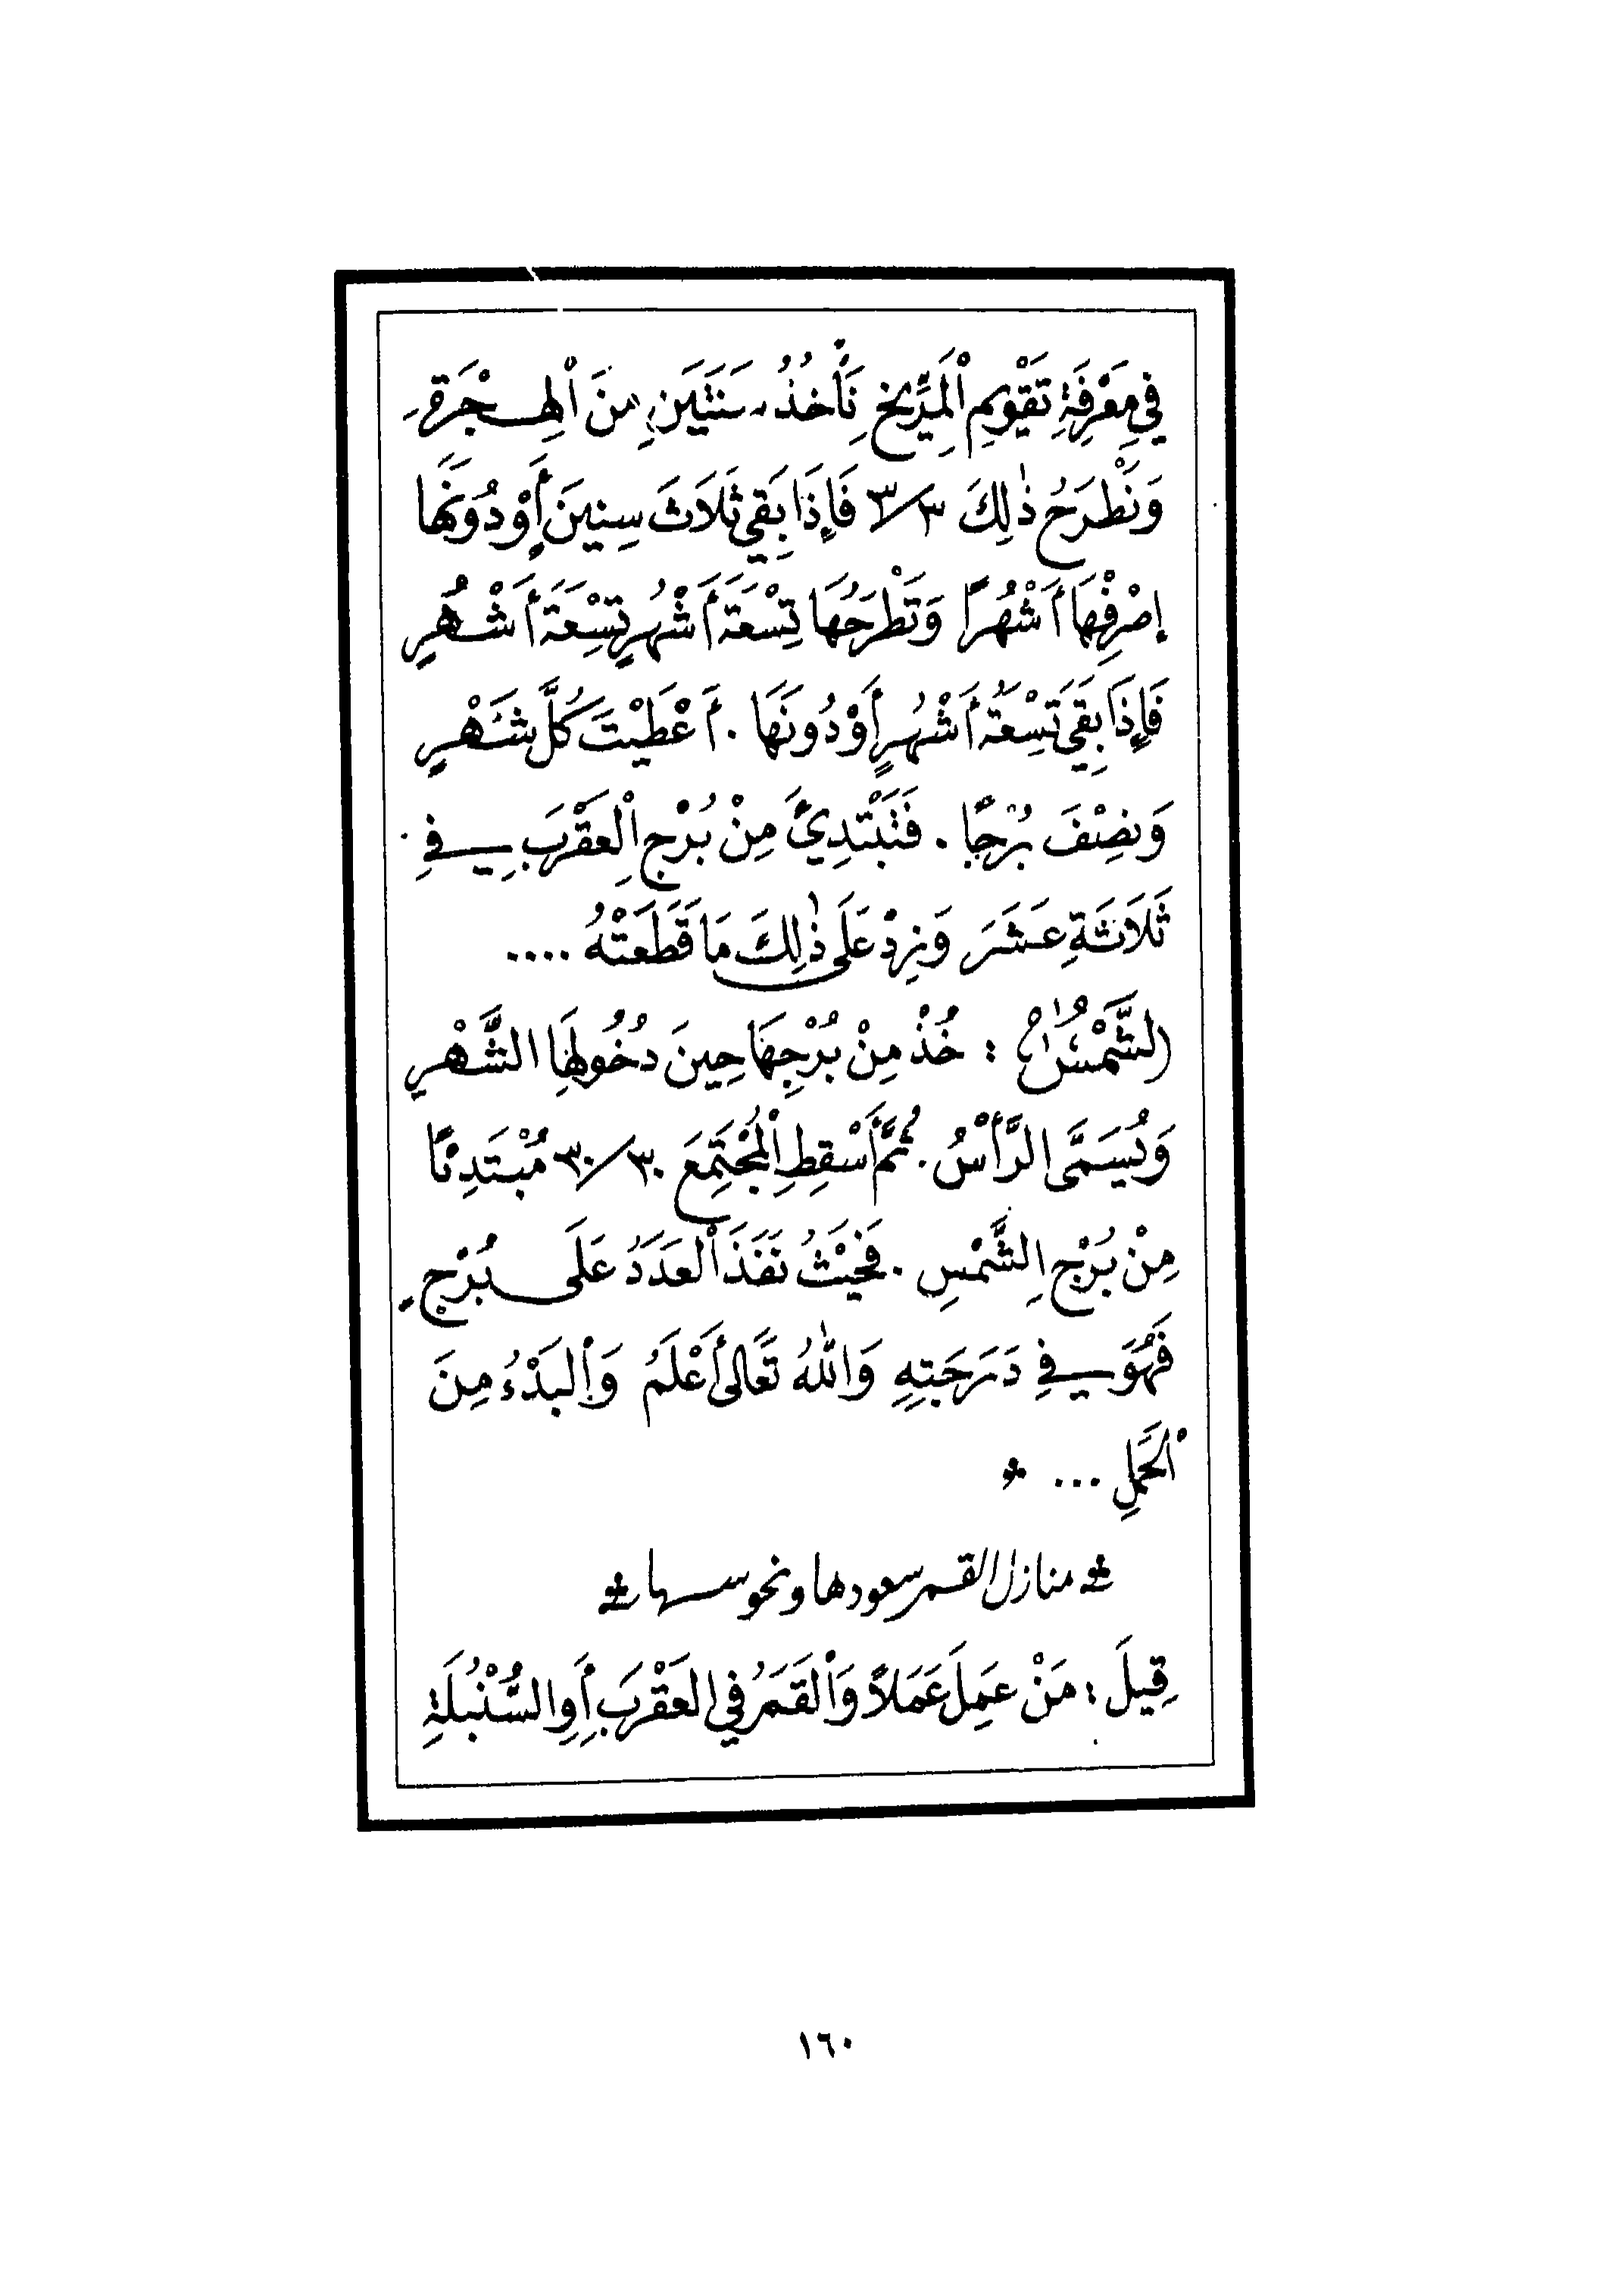 فِي مَعْرِفَةِ تَقْوِيمِ اْلمِرِّيخِ نَأْخُذُ سَنَتَينِ مِنَ اْلهِجْرَةِ
وَنَطْرَحُ ذٰلِكَ ٣/٣ فَإِذَا بَقِي ثَلَاثَ سِنِينَ أَوْ دُونَهَا
إِصْرِفْهَا أَشْهُرًا وَتَطْرَحُهَا تِسْعَةَ أَشْهُرٍ تِسْعَةَ أَشْهُرٍ
فَإِذَا بَقِيَ تِسْعَةُ أَشْهُرٍ أَوْ دُونَهَا . أَعْطَيْتَ كُلَّ شَهْرٍ
وَنِصْفَ بُرْجًا . فَتَبْتَدِئُ مِنْ بُرْجِ اْلعَقْرَبِ فِي
ثَلَاثَةِ عَشَرَ وَزِدْ عَلَى ذٰلِكَ مَا قَطَعَتْهُ ....
الشَّمْسُ : خُذْ مِنْ بُرْجِهَا حِينَ دُخُولِهَا الشَّهْرِ
وَيُسَمَّى الرَّأْسُ . ثُمَّ أَسْقِطِ اْلمُجْتَمِعَ ٣٠/٣٠ مُبْتَدِئًا
مِنْ بُرْجِ الشَّمْسِ . فَحَيْثُ نَفَذَ اْلعَدَدُ عَلَى بُرْجٍ
فَهُوَ فِي دَرَجَتِهِ وَاللهُ تَعَالَى أَعْلَمُ وَاْلبَدْءُ مِنَ
اْلحَمَلِ ...
منازل القمر سعودها ونحوسها
قِيلَ : مَنْ عَمِلَ عَمَلاً وَاْلقَمَرُ فِي العَقْرَبِ أَوِ السُّنْبُلَةِ
١٦٠